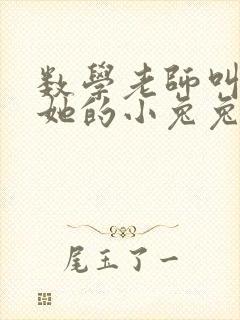 数學老師叫
她的小兔兔
尾玉了一